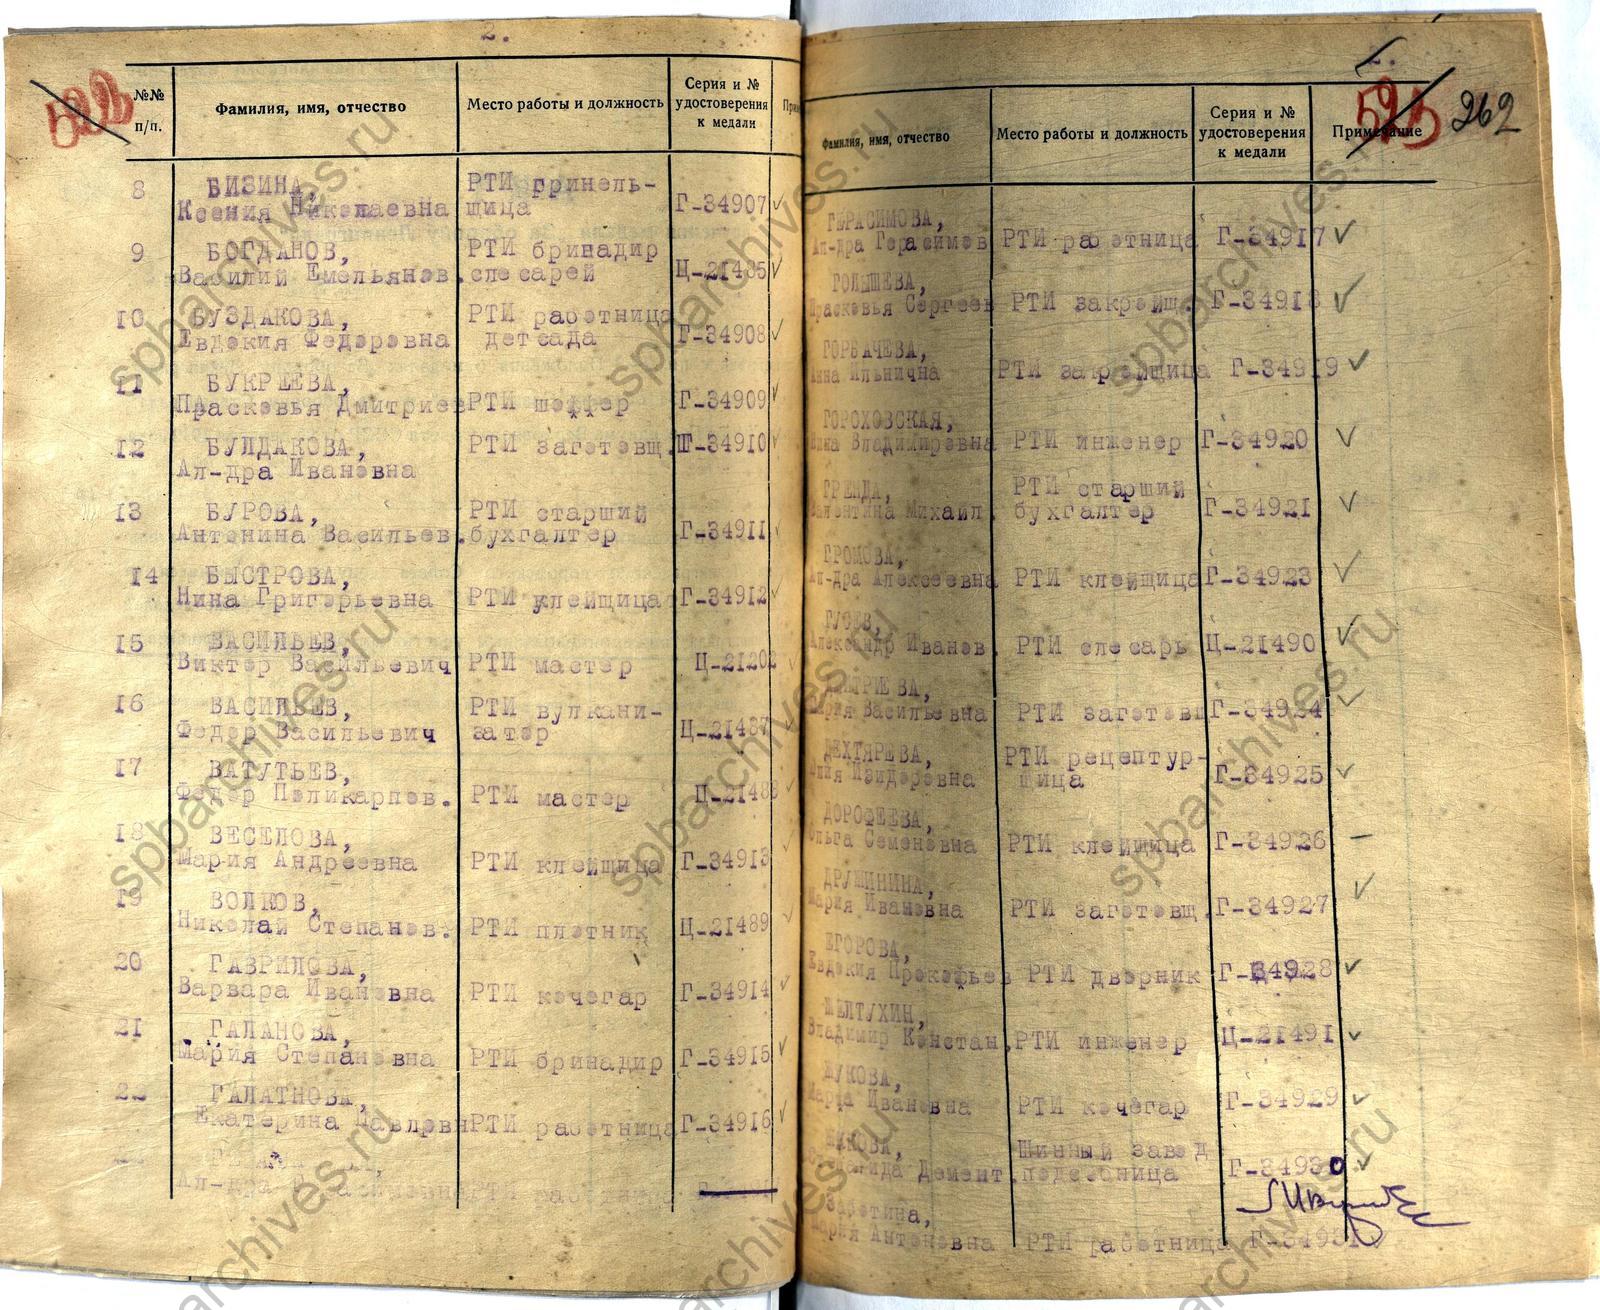 2.
№№ п/п.
Фамилия, имя, отчество
Место работы и должность
Серия и № удостоверения к медали
8 БИЗИНА, РТИ гринель-
Ксения Николаевна щица Г-34907
9 БОГДАНОВ, РТИ бринадир
Василий Емельянов. слесарей Ц-21485
10 БУЗДАКОВА, РТИ работница
Евдокия Федоровна детсада Г-34908
11 БУКРЕЕВА,
Прасковья Дмитриев РТИ шоффер Г-34909
12 БУЛДАКОВА, РТИ заготовщ. Г-34910
Ал-дра Ивановна
13 БУРОВА, РТИ старший
Антонина Васильев. бухгалтер Г-34911
14 БЫСТРОВА,
Нина Григорьевна РТИ клейщица Г-34912
15 ВАСИЛЬЕВ,
Виктор Васильевич РТИ мастер Ц-21202
16 ВАСИЛЬЕВ, РТИ вулкани-
Федор Васильевич затор Ц-21487
17 ВАТУТЬЕВ,
Федор Поликарпов. РТИ мастер Ц-21488
18 ВЕСЕЛОВА,
Мария Андреевна РТИ клейщица Г-34913
19 ВОЛКОВ,
Николай Степанов. РТИ плотник Ц-21489
20 ГАВРИЛОВА,
Варвара Ивановна РТИ кочегар Г-34914
21 ГАЛАНОВА,
Мария Степановна РТИ бринадир Г-34915
22 ГАЛАТНОВА,
Екатерина Павловн РТИ работница Г-34916
Ал-дра РТИ работница
2.
262
Фамилия, имя, отчество
Место работы и должность
Серия и № удостоверения к медали
Примечание
ГЕРАСИМОВА,
Ал-дра Герасимов РТИ работница Г-34917
ГОЛЫШЕВА,
Прасковья Сергеев РТИ закройщ. Г-34918
ГОРБАЧЕВА,
Анна Ильнична РТИ закройщица Г-34919
ГОРОХОВСКАЯ,
Нина Владимировна РТИ инженер Г-34920
ГРЕНДА, РТИ старший
Валентина Михаил. бухгалтер Г-34921
ГРОМОВА,
Ал-дра Алексеевна РТИ клейщица Г-34923
ГУСЕВ,
Александр Иванов. РТИ слесарь Ц-21490
ДМИТРИЕВА,
Мария Васильевна РТИ заготовщ Г-34924
ДЕХТЯРЕВА, РТИ рецептур-
Юлия Изидоровна щица Г-34925
ДОРОФЕЕВА,
Ольга Семеновна РТИ клейщица Г-34926
ДРУЖИНИНА,
Мария Ивановна РТИ заготовщ. Г-34927
ЕГОРОВА,
Евдокия Прокофьев РТИ дворник Г-34928
ЖЕЛТУХИН,
Владимир Констан. РТИ инженер Ц-21491
ЖУКОВА,
Марфа Ивановна РТИ кочегар Г-34929
Шинный завод
Демент. подсобница Г-34930
Мария Антоновна РТИ работница Г-34931
spbarchives.ru